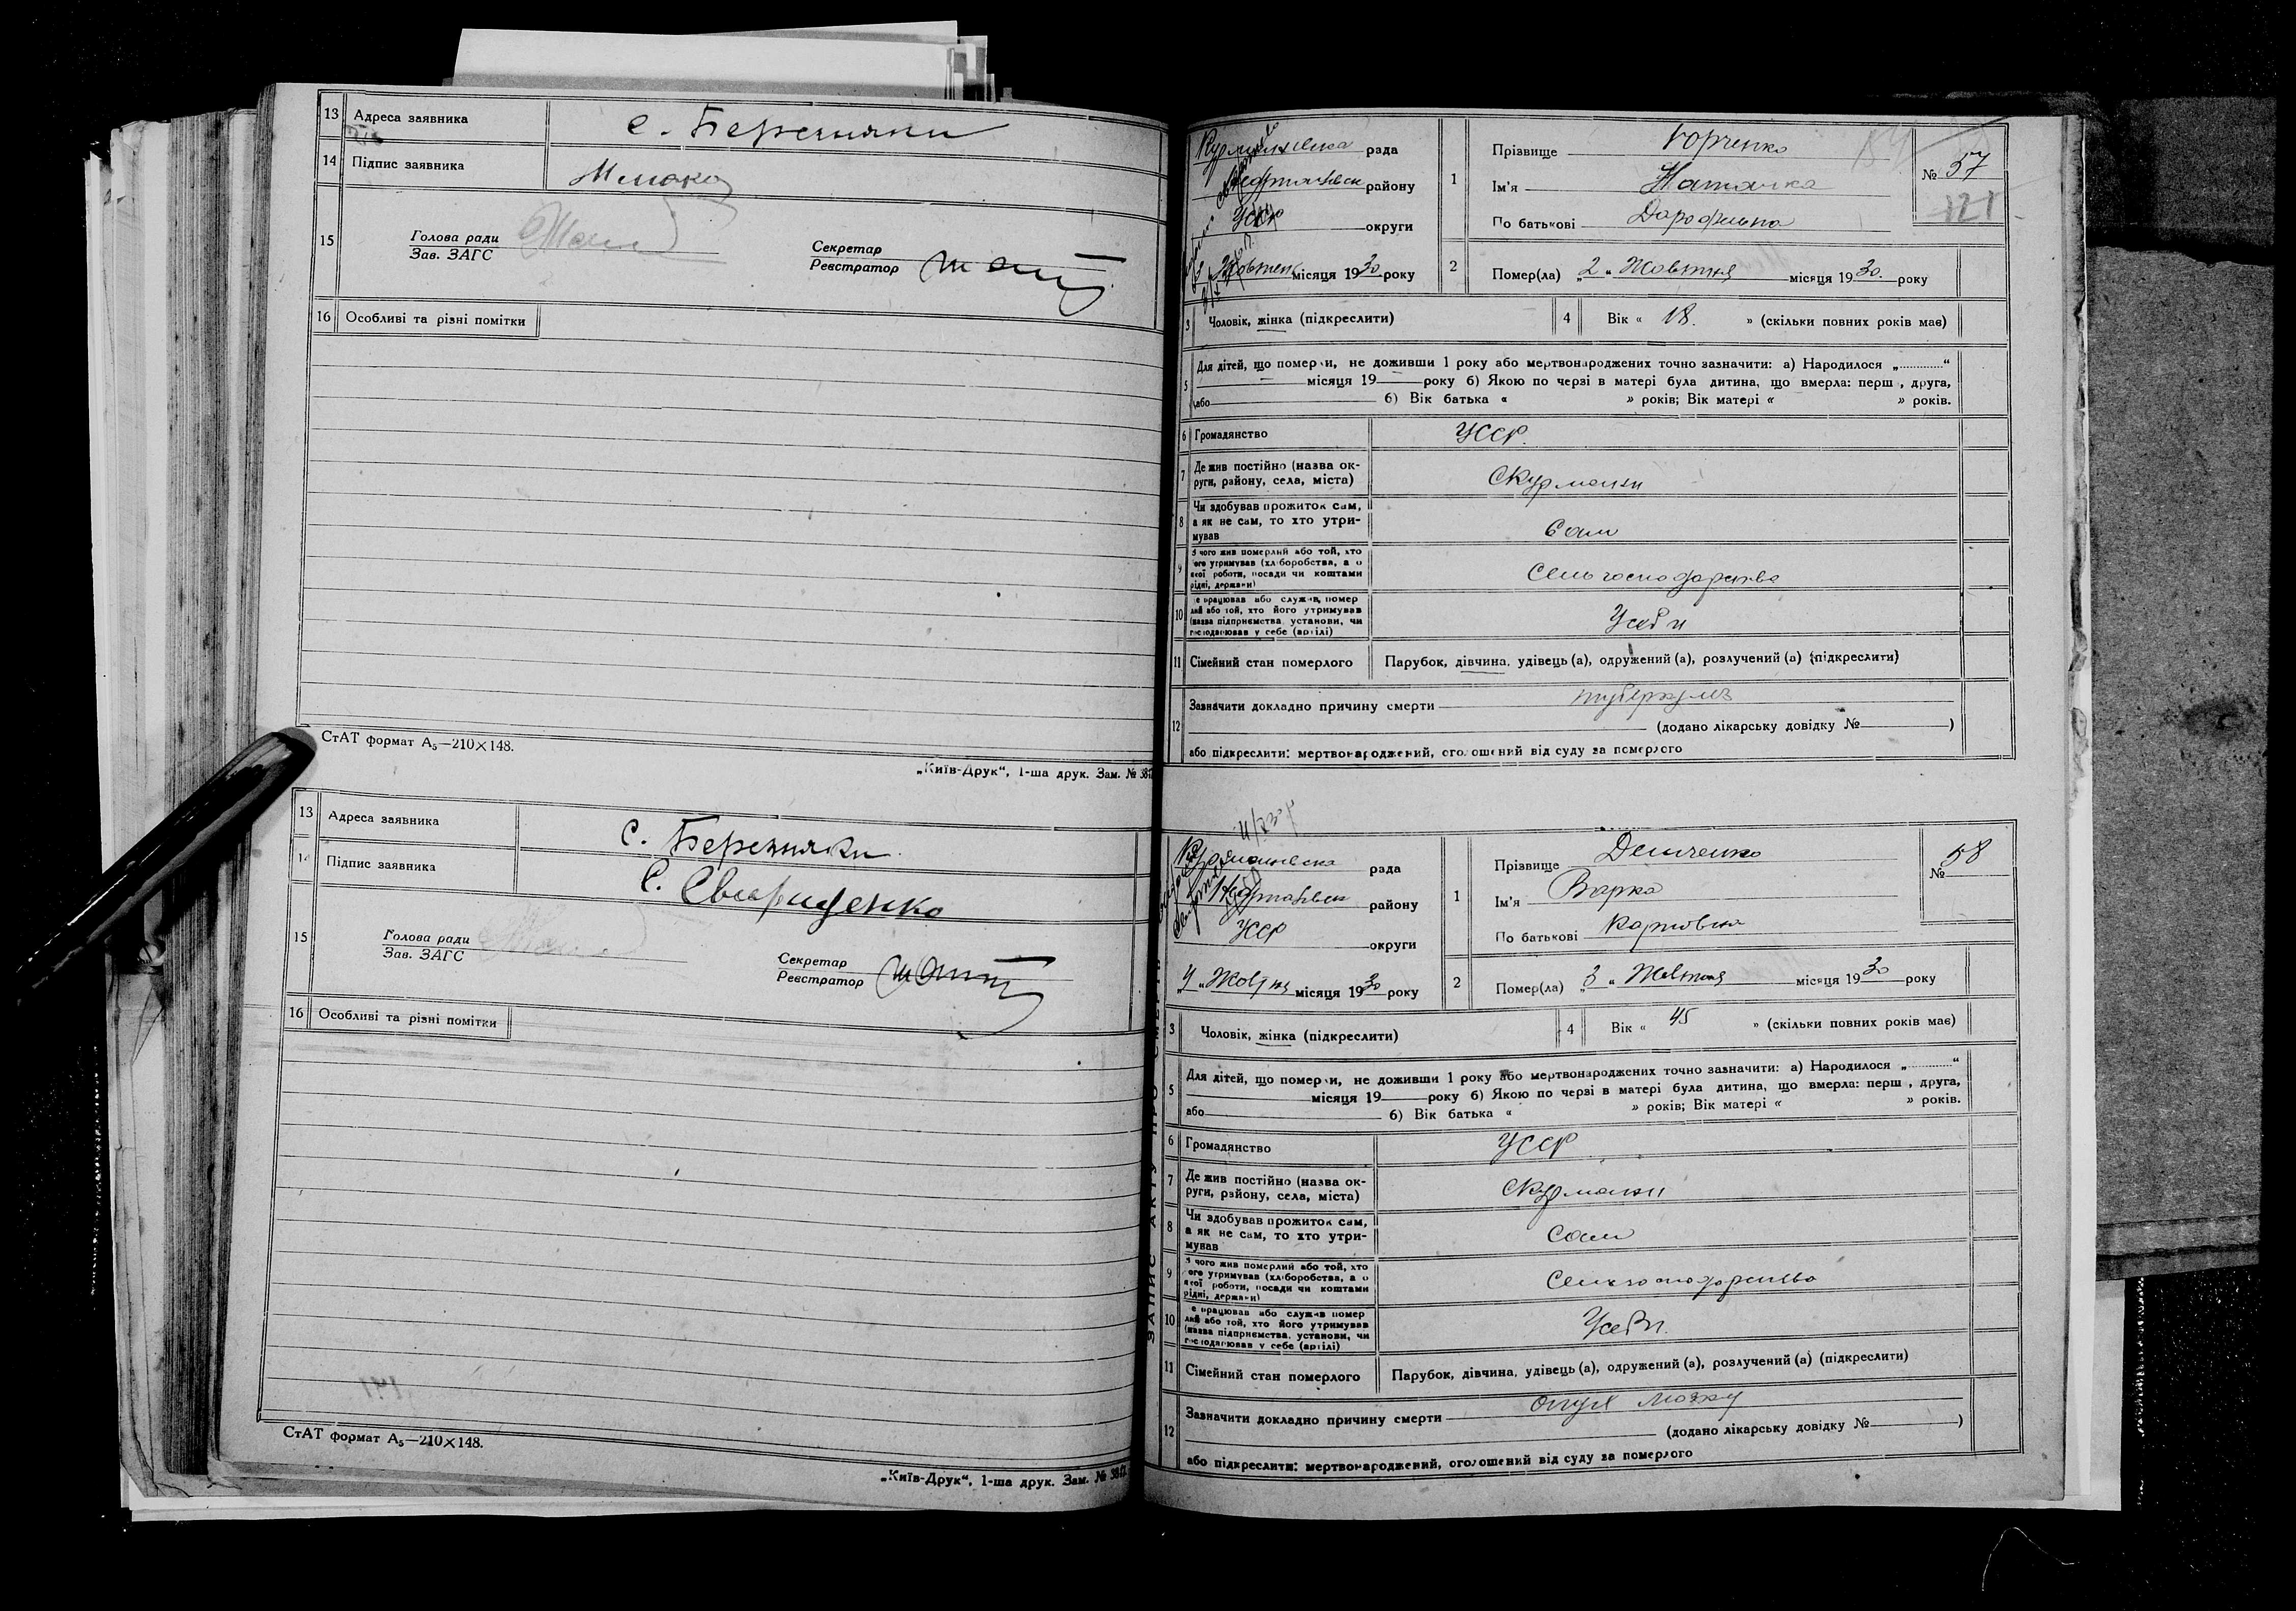 13 Адреса заявника с. Березняки
14 Підпис заявника
15 Голова ради
Зав. ЗАГС
Секретар
Реєстратор
16 Особливі та різні помітки
СтАТ формат А₅—210×148.
„Київ-Друк“, 1-ша друк. Зам. №
13 Адреса заявника с. Березняки
14 Підпис заявника С. Свириденко
15 Голова ради
Зав. ЗАГС
Секретар
Реєстратор
16 Особливі та різні помітки
СтАТ формат А₅—210×148.
„Київ-Друк“, 1-ша друк. Зам. №
рада
району
УССР округи
місяця 1930 року
1 Прізвище Юрченко
Ім'я Наталка
По батькові
№ 57
121
2 Помер(ла) „2“ Жовтня місяця 1930. року
3 Чоловік, жінка (підкреслити)
4 Вік « 18. » (скільки повних років має)
5 Для дітей, що померли, не доживши 1 року або мертвонароджених точно зазначити: а) Народилося „............“
місяця 19 року б) Якою по черзі в матері була дитина, що вмерла: перш , друга,
або б) Вік батька « » років; Вік матері « » років.
6 Громадянство УССР.
7 Де жив постійно (назва ок-
руги, району, села, міста) С Курмани
8 Чи здобував прожиток сам,
а як не сам, то хто утри-
мував Сам
9 З чого жив померлий або той, хто
його утримував (хліборобства, а о
якої роботи, посади чи коштами
рідні, держави) Сельгосподарство
10 е працював або служив, помер
лий або той, хто його утримував
(назва підприємства, установи, чи
господарював у себе (артілі) У себи
11 Сімейний стан померлого Парубок, дівчина, удівець (а), одружений (а), розлучений (а) (підкреслити)
12 Зазначити докладно причину смерти туберкульз
(додано лікарську довідку № )
або підкреслити: мертвонароджений, оголошений від суду за померлого
ЗАПИС АКТУ ПРО СМЕРТЬ
рада
району
УССР округи
„4“ Жовтня місяця 1930 року
1 Прізвище Демченко
Ім'я Варка
По батькові Карповна
№ 58
2 Помер(ла) „3“ Жовтня місяця 1930 року
3 Чоловік, жінка (підкреслити)
4 Вік « 45 » (скільки повних років має)
5 Для дітей, що померли, не доживши 1 року або мертвонароджених точно зазначити: а) Народилося „............“
місяця 19 року б) Якою по черзі в матері була дитина, що вмерла: перш , друга,
або б) Вік батька « » років; Вік матері « » років.
6 Громадянство УССР
7 Де жив постійно (назва ок-
руги, району, села, міста) С Курмани
8 Чи здобував прожиток сам,
а як не сам, то хто утри-
мував Сам
9 З чого жив померлий або той, хто
його утримував (хліборобства, а о
якої роботи, посади чи коштами
рідні, держави) Сельгосподарство
10 е працював або служив помер
лий або той, хто його утримував
(назва підприємства, установи, чи
господарював у себе (артілі) У себи.
11 Сімейний стан померлого Парубок, дівчина, удівець (а), одружений (а), розлучений (а) (підкреслити)
12 Зазначити докладно причину смерти мозку
(додано лікарську довідку № )
або підкреслити: мертвонароджений, оголошений від суду за померлого